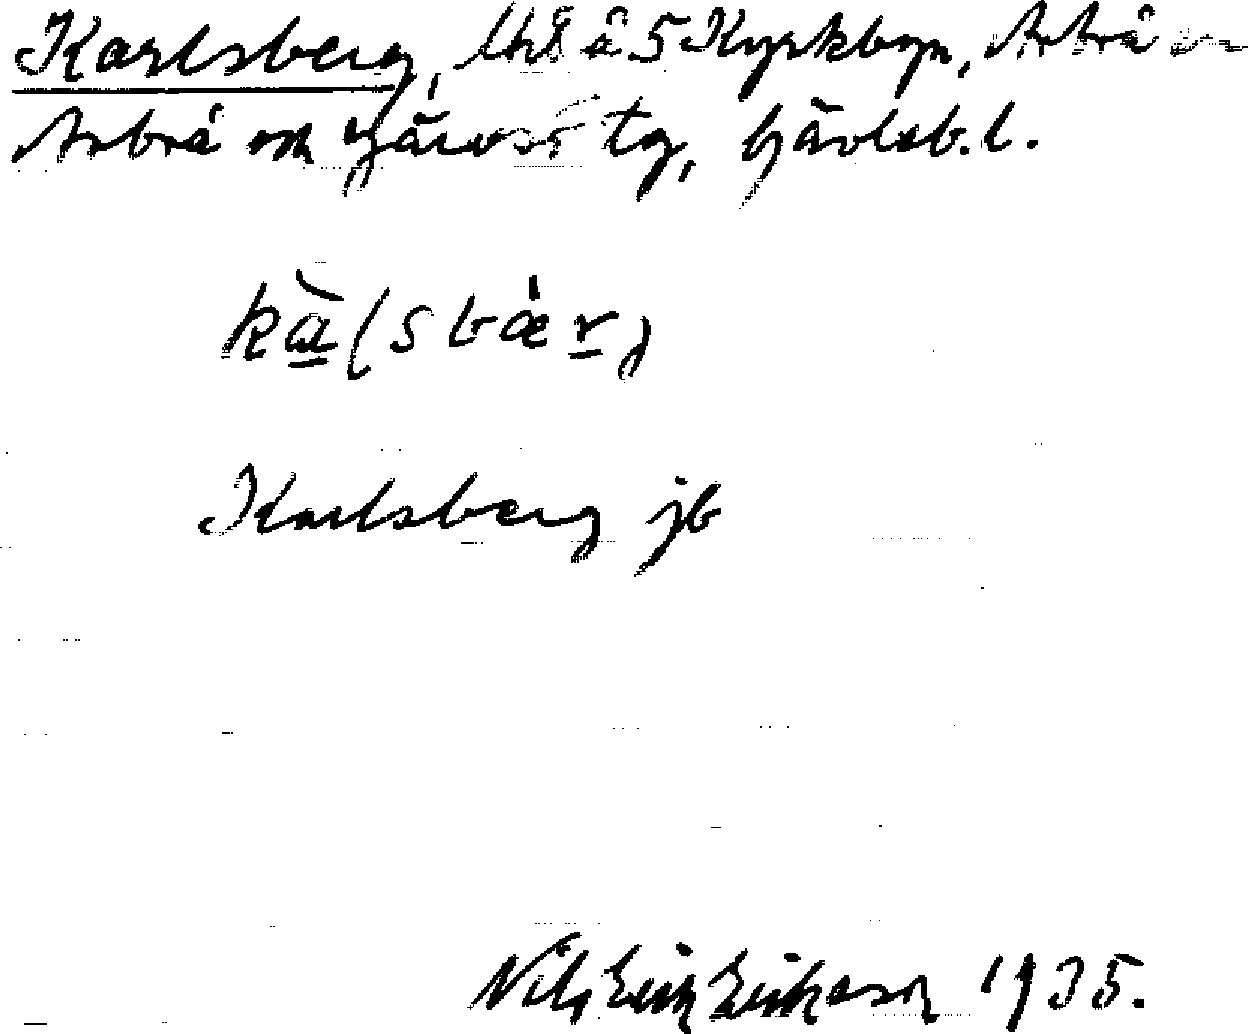 Karlsberg, lht å 5 Kyrkbyn, Arbrå sn
Arbrå och Järvsö tg, Gävleb. l.
kàlsbær,
Karlsberg jb
Nils Erik Erikson 1935.